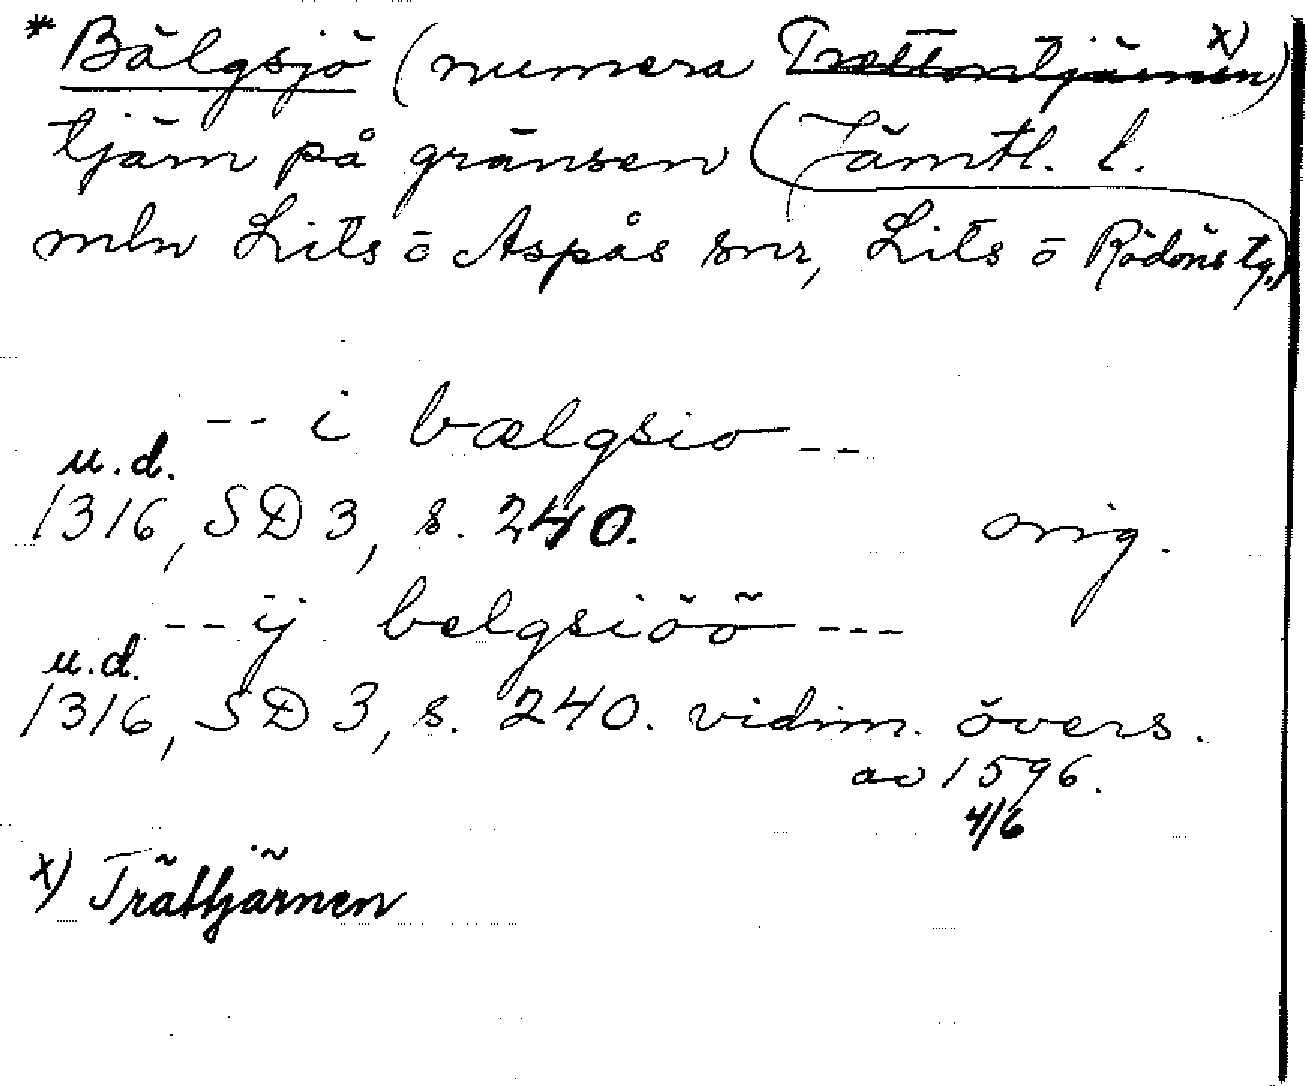 * Bälgsjö (numera Trättontjärnen x))
tjärn på gränsen (Jämtl. l.
mln Lits o Aspås snr, Lits o Rödöns tg.)
-- i bælgsio --
u.d.
1316, SD 3, s. 240. orig.
-- ij belgsiöö ---
u.d.
1316, SD 3, s. 240. vidim. övers.
av 1596.
4/6
x) Trättjärnen